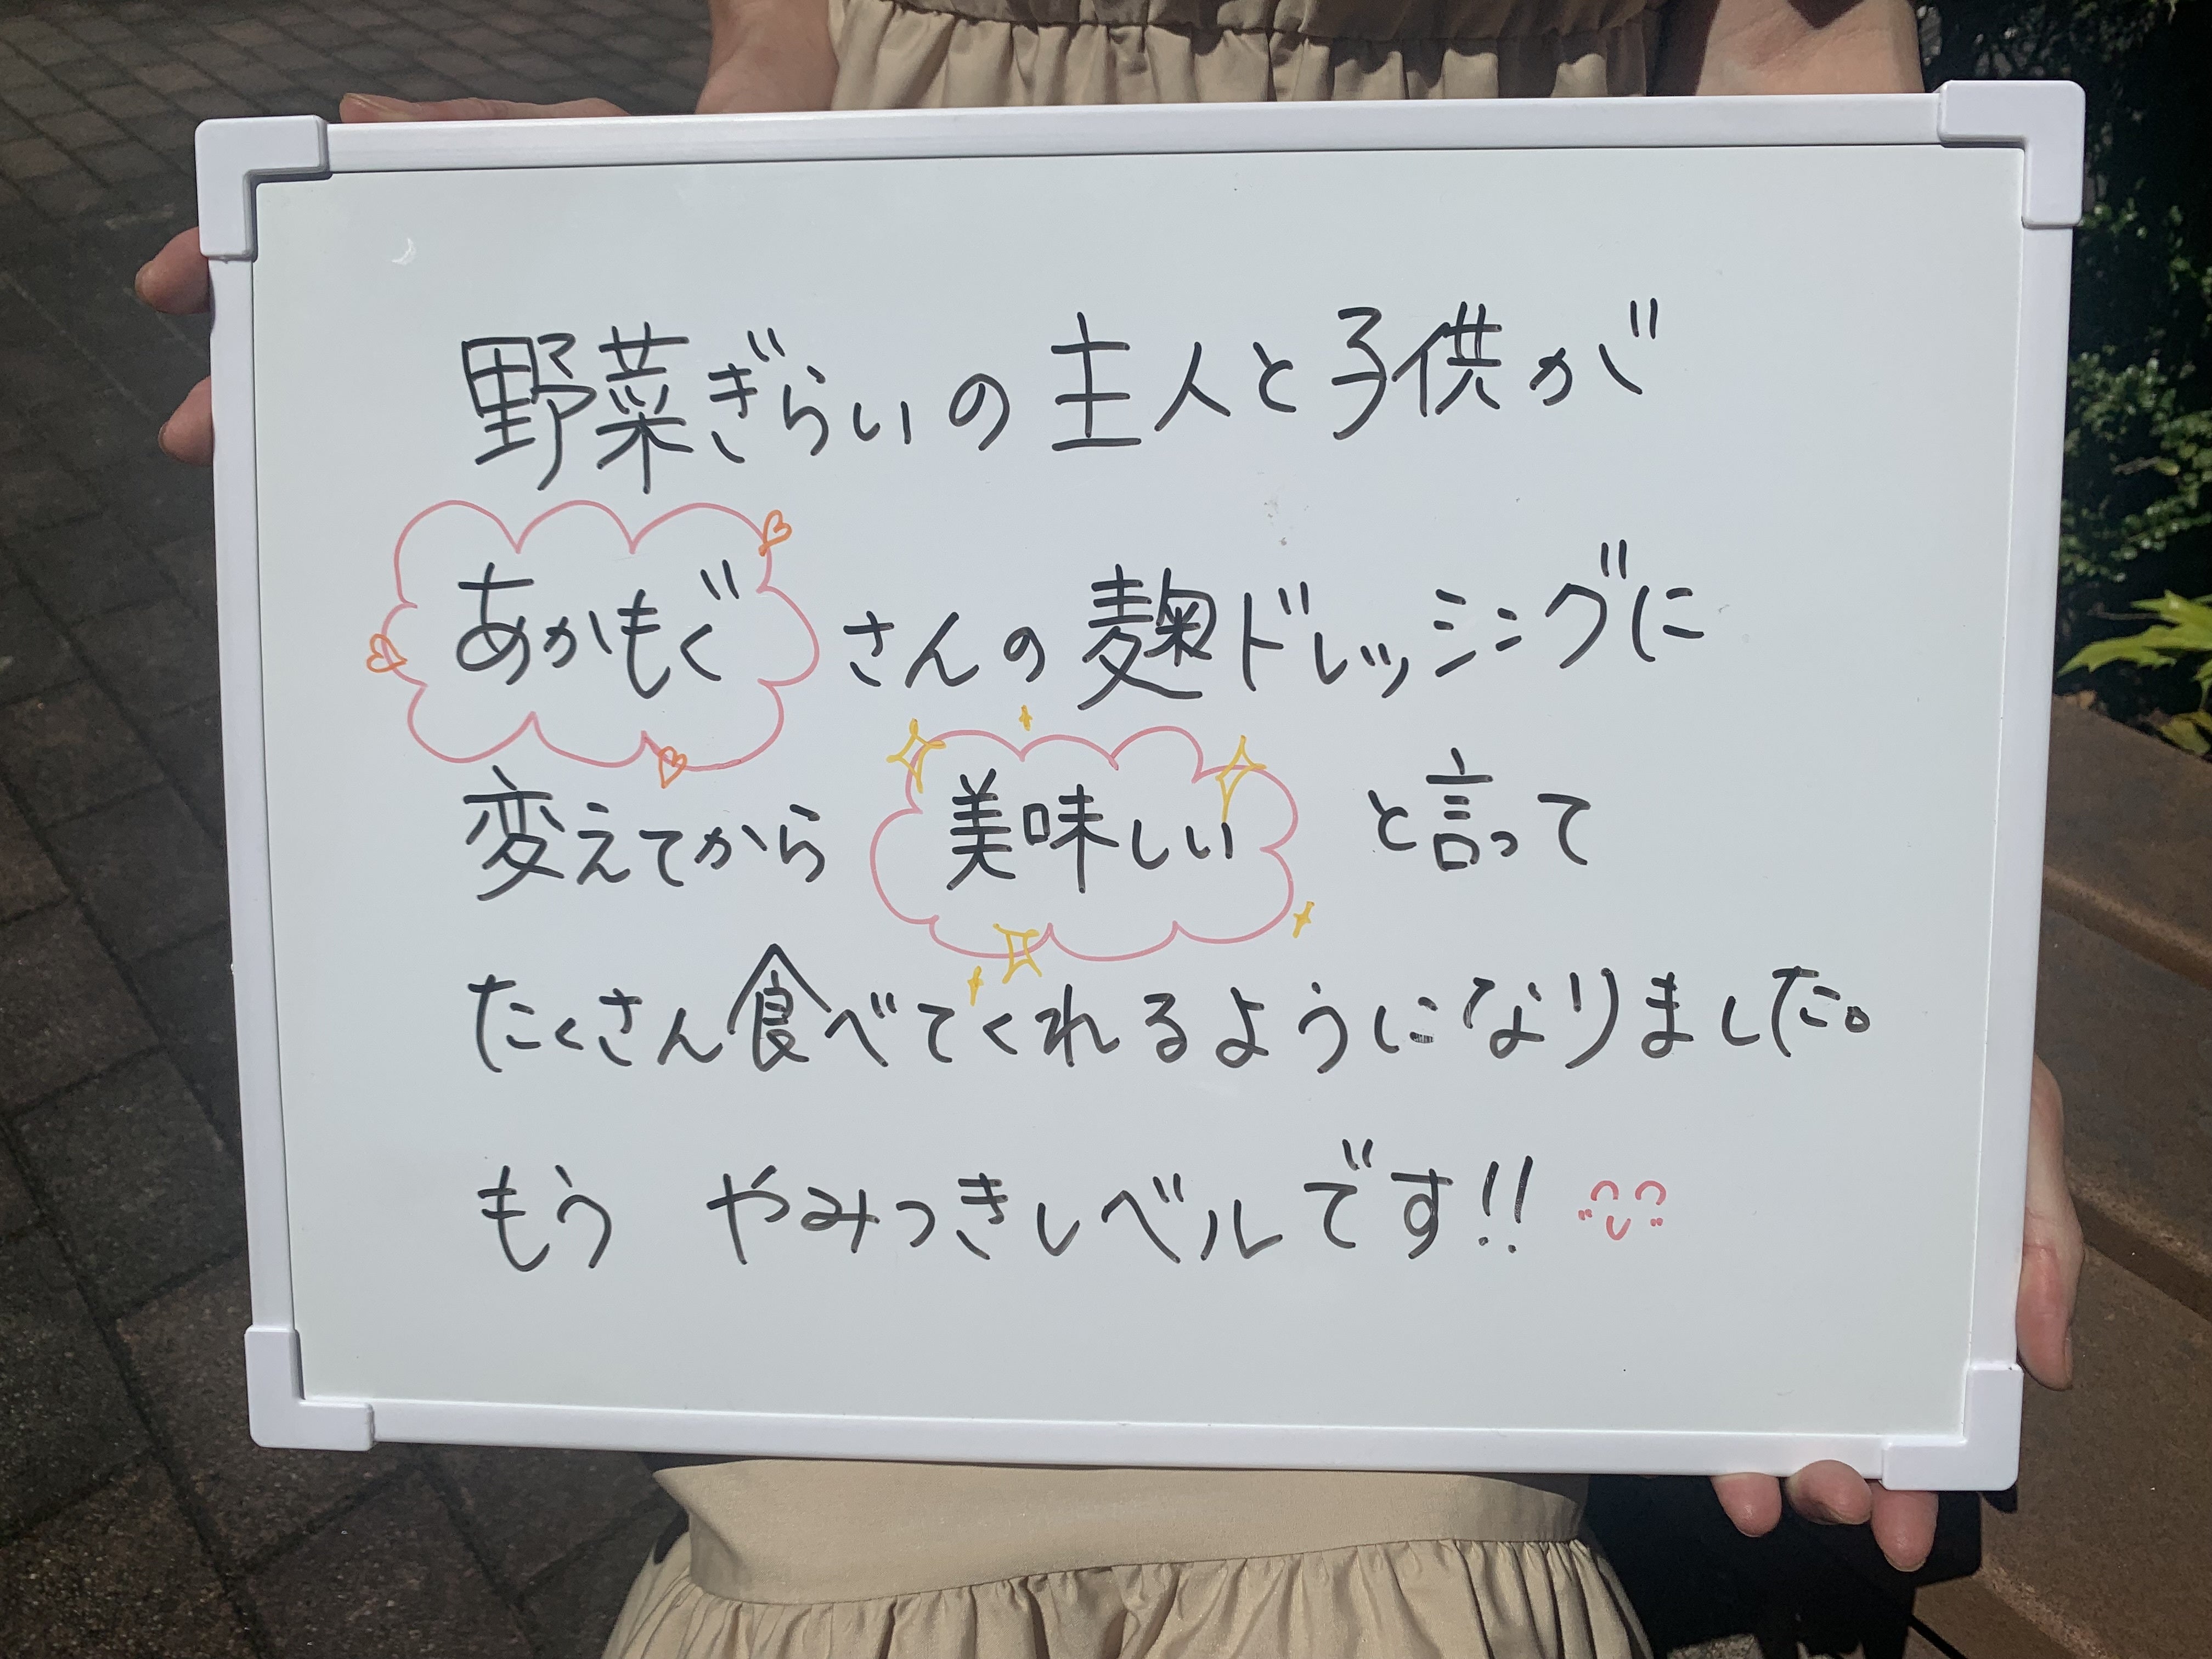 野菜ぎらいの主人と子供が
あかもぐさんの麹ドレッシングに
変えてから美味しいと言って
たくさん食べてくれるようになりました。
もう やみつきレベルです!!